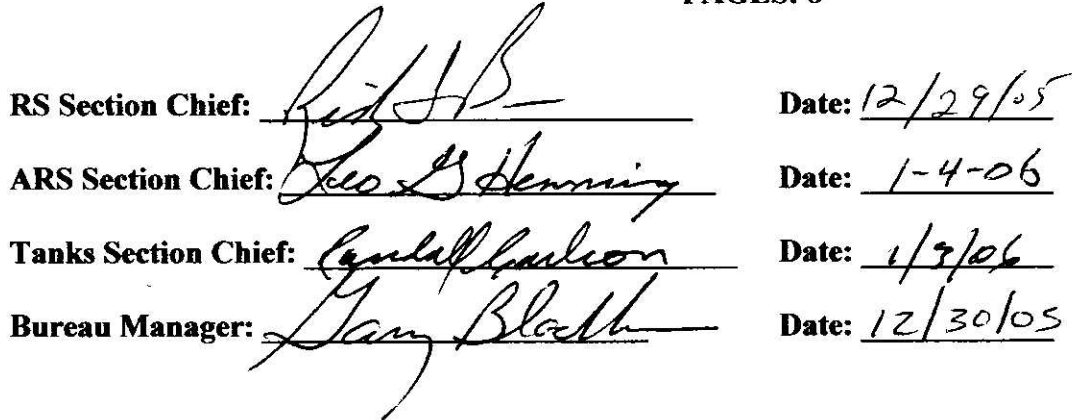 RS Section Chief: Date: 12/29/05
ARS Section Chief: Leo G Henning Date: 1-4-06
Tanks Section Chief: Randall Carlson Date: 1/3/06
Bureau Manager: Gary Date: 12/30/05